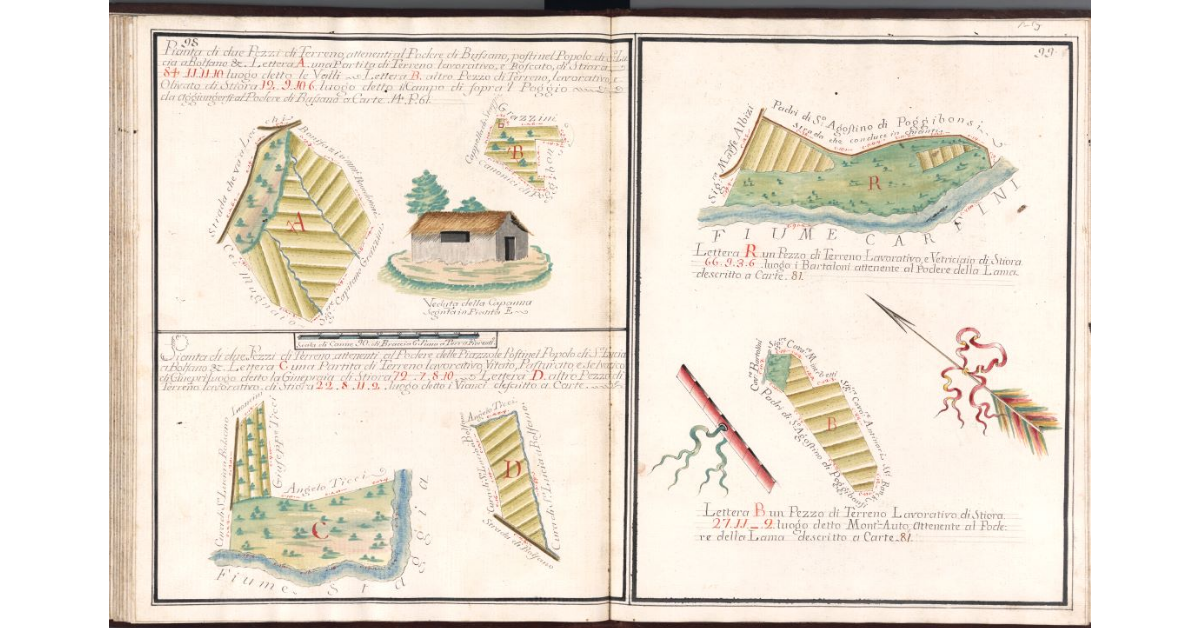 98
Pianta di due Pezzi di Terreno attenenti al Podere di Bassano, posti nel Popolo di S.ta Lu
cia a Bolsano &c. Lettera A. una Partita di Terreno lavorativo, e Boscato, di Stiora
84. 11.11.10 luogo detto le Valli Lettera B. altro Pezzo di Terreno, lavorativo, e
Olivato di Stiora 12. 9.10 6. luogo detto il Campo di sopra 'l Poggio
da aggiungersi al Podere di Bassano a Carte P. 61.
Strada che va a
A
Capitano Grazzini
Grazzini
B
Canonici
Veduta della Capanna
Segnata in Pianta E
Scala di Canne 90. di Braccia 6.
Pianta di due Pezzi di Terreno attenenti al Podere delle Piazzole Posti nel Popolo di S.ta Lucia
a Bolsano &c. Lettera C. una Partita di Terreno lavorativo, Vitato, Pasturato, e Selvato
luogo detto la Gineparia di Stiora 72. 7. 8. 10 Lettera D. altro Pezzo di
Terreno lavorativo, di Stiora 22. 8. 11. 2. luogo detto i descritto a Carte
Cura di S.ta Lucia a Bolsano
Giuseppe Ticci
Angelo Ticci
C
Fiume Staggia
Angelo Ticci
Cura di S.ta Lucia a Bolsano
D
Cura di S.ta Lucia a Bolsano
Strada di Bolsano
99
Sig.ri Maffi Albizi
Padri di S.o Agostino di Poggibonsi
Strada che conduce in
R
FIUME CARFINI
Lettera R un Pezzo di Terreno Lavorativo, e Vetriciato di Stiora
66. 9. 3. 6 luogo i Bartaloni attenente al Podere della Lama
descritto a Carte 81.
Padri di S. Agostino di Poggibonsi
B
Lettera B un Pezzo di Terreno Lavorativo, di Stiora
27. 11 _ 2. luogo detto Mont'Auto, attenente al Pode-
re della Lama descritto a Carte 81.